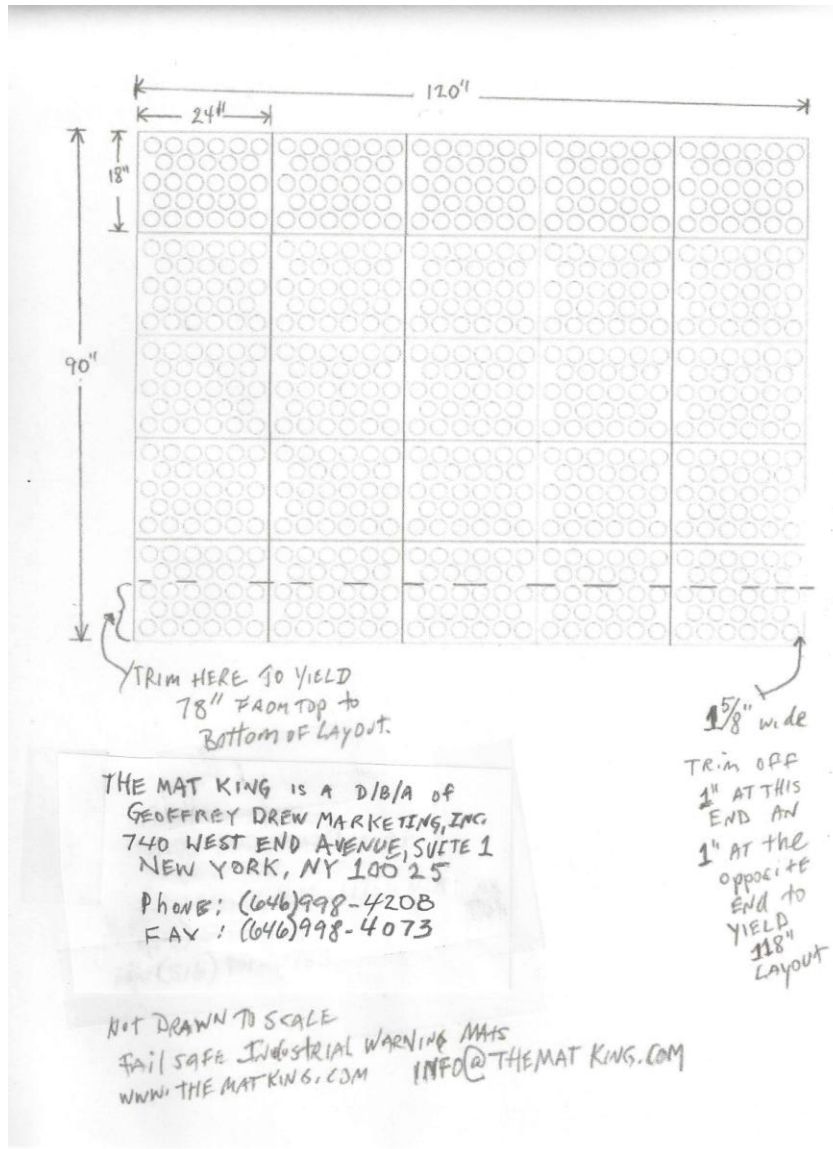 120"
24"
18"
90"
TRIM HERE TO YIELD
78" FROM TOP to
Bottom OF LAYOUT.
1 5/8" wide
TRIM OFF
1" AT THIS
END AN
1" AT the
opposite
END to
YIELD
118"
LAYOUT
THE MAT KING IS A D/B/A of
GEOFFREY DREW MARKETING, INC.
740 WEST END AVENUE, SUITE 1
NEW YORK, NY 10025
Phone: (646)998-4208
FAX : (646)998-4073
NOT DRAWN TO SCALE
FAil SAFE INDUSTRIAL WARNING MATS
WWW.THEMATKING.COM INFO@THEMATKING.COM